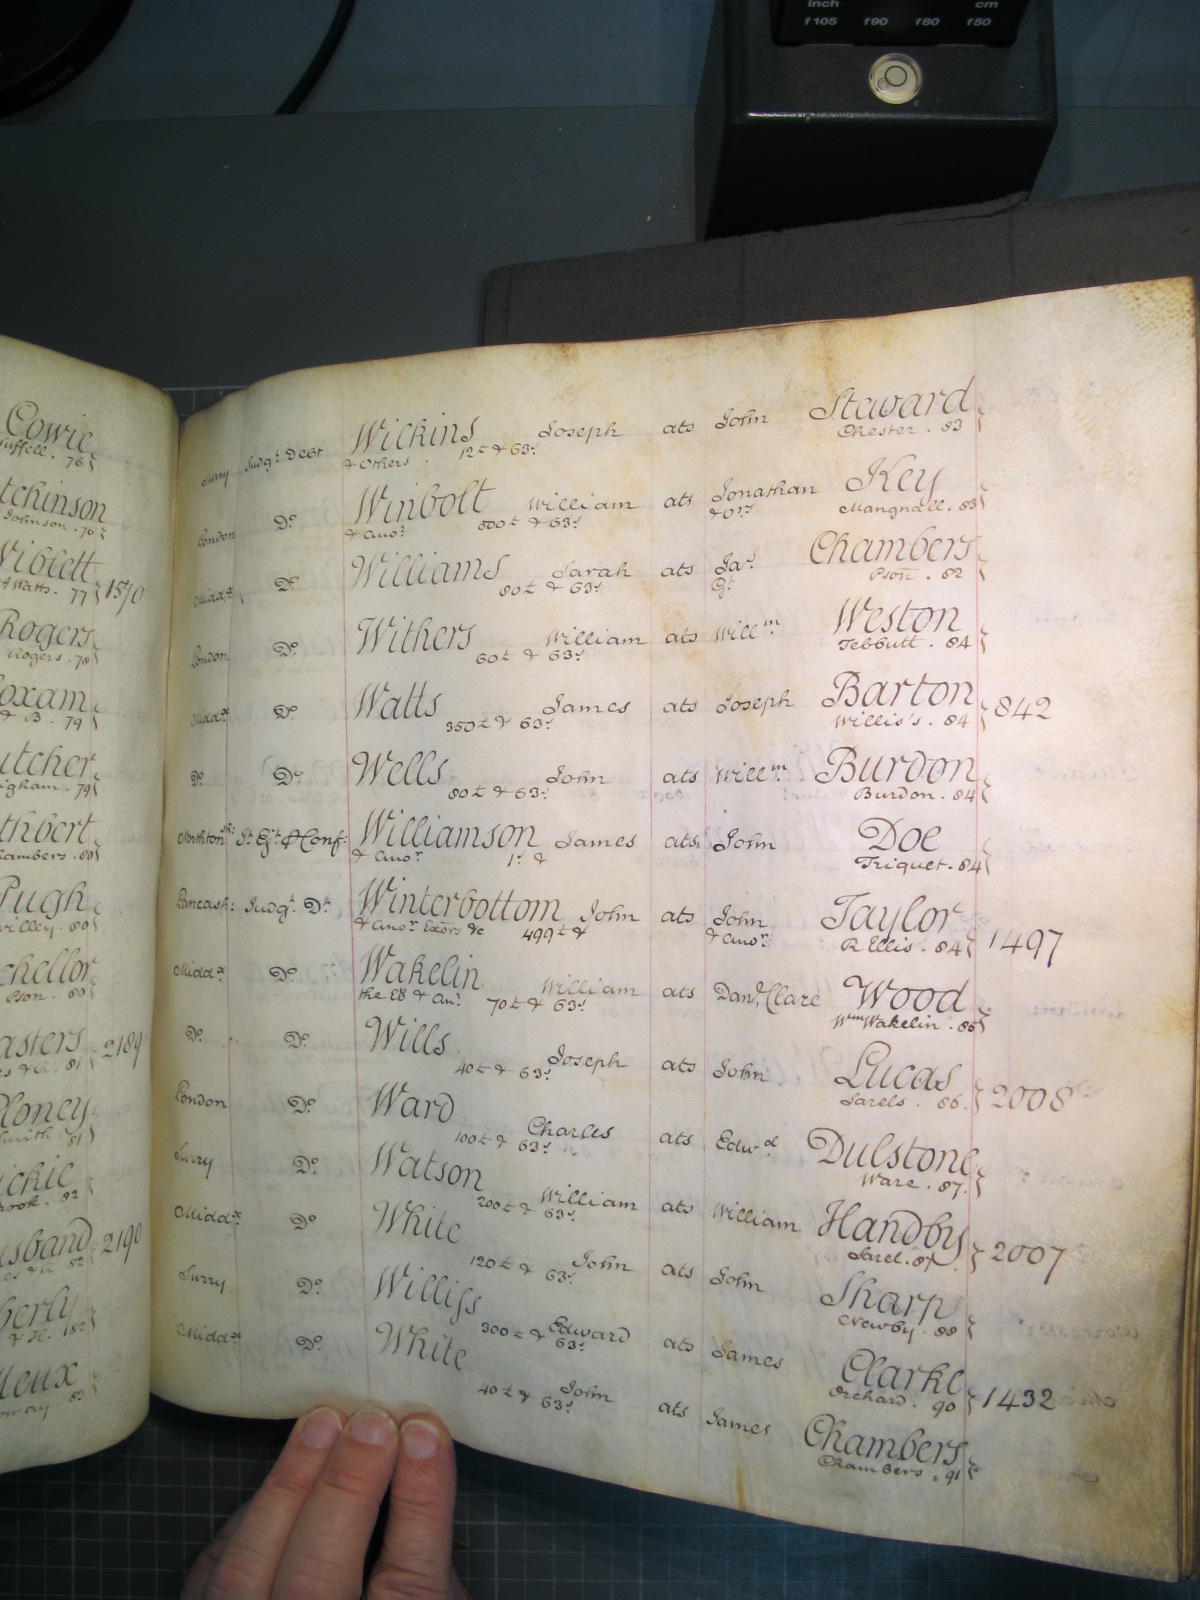 PHILIPS
inch cm
f105 f90 f80 f50
Cowie
76
tchinson
Johnson . 76
Niblett
Watts . 77 1570
Rogers
Rogers . 78
oxam
& B . 79
utcher
gham . 79
thbert
ambers . 80
Pugh
willey . 80
chellor
Pson . 80
asters 2189
81
Ploney
Smith 81
ickie
rook . 82
sband 2190
82
berly
& H. 182
eux
oway 83
Surry Judgt Debt Wickins Joseph ats John Staward
& Others 12£ & 63s Chester . 83
London Do Winbolt William ats Jonathan Key
& anor 800£ & 63s & ors Mangnall . 83
Middx Do Williams Sarah ats Jas Chambers
80£ & 63s Gt Pson . 82
London Do Withers William ats Willm Weston
60£ & 63s Tebbutt . 84
Middx Do Watts James ats Joseph Barton 842
350£ & 63s Willis's . 84
Do Do Wells John ats Willm Burdon
80£ & 63s Burdon . 84
Northton Jt Ejt & Conf: Williamson James ats John Doe
& anor 1s & Triquet . 84
Lancash: Judgt Dt Winterbottom John ats John Taylor 1497
& anor Exors &c 499£ & & anor R Ellis . 84
Middx Do Wakelin William ats Danl Clare Wood
the Eß & anr 70£ & 63s Wm Wakelin . 85
Do Do Wills Joseph ats John Lucas 2008
40£ & 63s Sarels . 86
London Do Ward Charles ats Edwd Dulstone
100£ & 63s Ware . 87
Surry Do Watson William ats William Handby 2007
200£ & 63s Sarel . 87
Middx Do White John ats John Sharp
120£ & 63s Newby . 88
Surry Do Williss Edward ats James Clarke 1432
300£ & 63s Orchard . 90
Middx Do White John ats James Chambers
40£ & 63s Chambers . 91